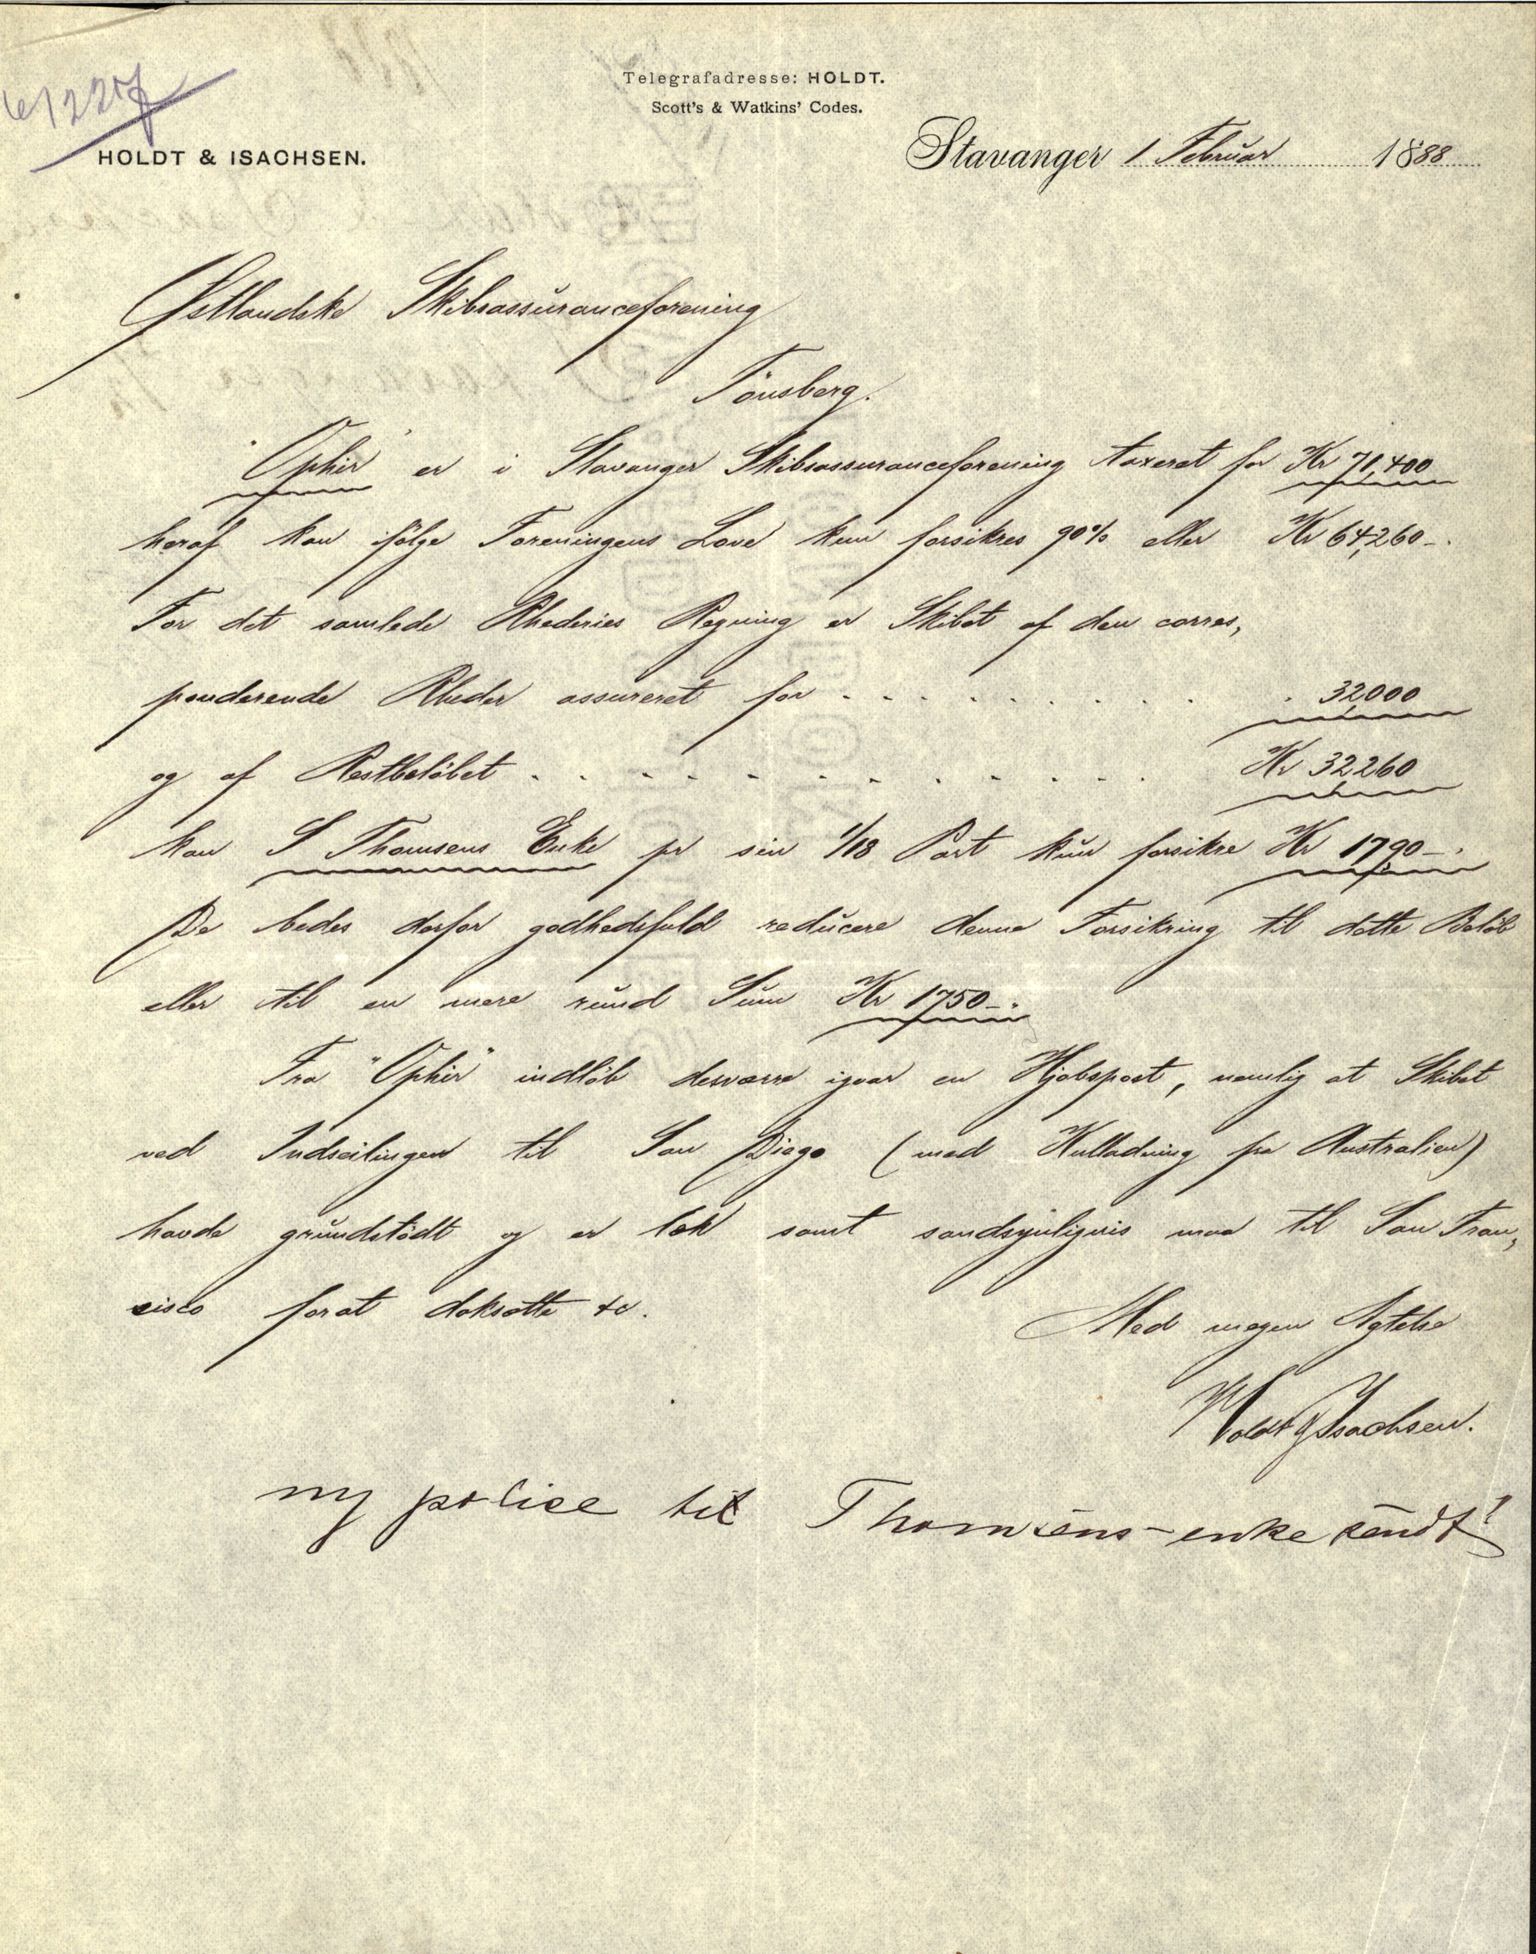 Telegrafadresse: HOLDT.
Scott's & Watkins' Codes.
HOLDT & ISACHSEN.
Stavanger 1 Februar 1888
Østlandske Skibsassuranceforening
Tönsberg.
"Ophir" er i Stavanger Skibsassuranceforening taxeret for Kr 71,400
heraf kan ifölge Foreningens Love kun forsikres 90% eller Kr 64,260 -.
For det samlede Rhederies Regning er Skibet af den corres,
ponderende Rheder assureret for . . . . . . . . . . 32,000
og af Restbelöbet . . . . . . . . . . . . Kr 32,260
kan S Thomsens Enke pr sin 1/18 Part kun forsikre Kr 1790 -.
De bedes derfor godhedsfuld reducere denne Forsikring til dette Belöb
eller til en mere rund Sum Kr 1750 -.
Fra "Ophir" indlöb desværre igaar en Hjobspost, nemlig at Skibet
ved Indseilingen til San Diego (med Kulladning fra Australien)
havde grundstödt og er læk samt sandsynligvis maa til San Fran,
cisco forat doksætte &c.
Med megen Agtelse
Holdt & Isachsen.
ny police til Thomsens-enke sendt!